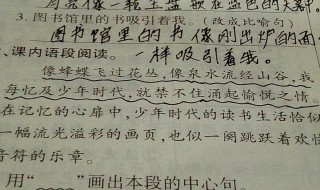 月亮像一轮玉盘 在蓝色的天幕
3. 图书馆里的书吸引着我。(改成比喻句)
图书馆里的书像刚出炉的面
、课内语段阅读。一样吸引着我。
像蜂蝶飞过花丛,像泉水流经山谷,我
每忆及少年时代,就禁不住涌起愉悦之情。
在记忆的心扉中,少年时代的读书生活恰似
一幅流光溢彩的画页,也似一阕跳跃着欢快
音符的乐章。
用“ ”画出本段的中心句。